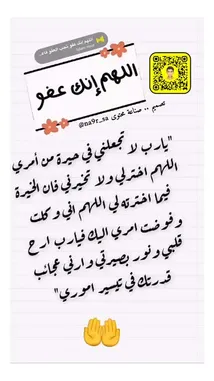 اللهم إنك عفو
تصميم .. صناعة محترى @na9r_sa
"يارب لا تجعلني في حيرة من أمري
اللهم اخترلي ولا تخيرني فان الخيرة
فيما اخترته لي اللهم اني وكلت
وفوضت امري اليك فيارب ارح
قلبي ونور بصيرتي وارني عجائب
قدرتك في تيسير اموري"